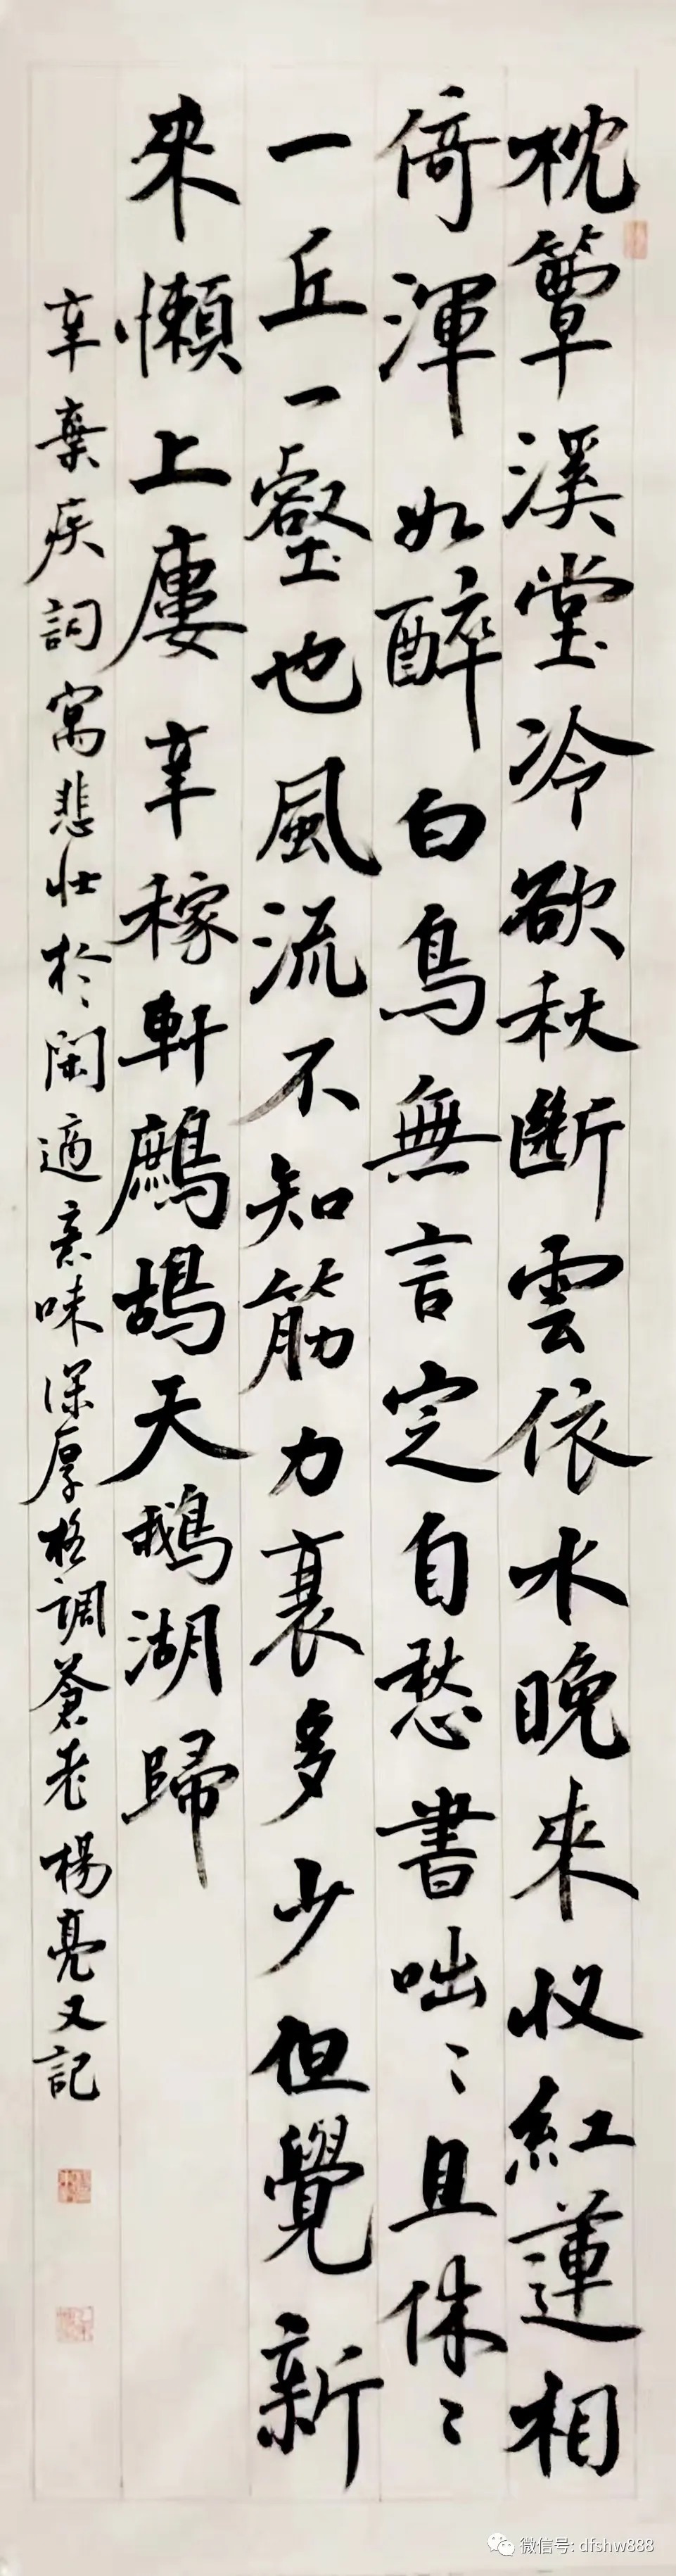 枕簟溪堂冷欲秋斷雲依水晚來收紅蓮相
倚渾如醉白鳥無言定自愁書咄〻且休〻
一丘一壑也風流不知筋力衰多少但覺新
來懶上樓辛稼軒鷓鴣天鵝湖歸
辛棄疾詞寓悲壯於閑適意味深厚格調蒼老楊亮又記
微信号: dfshw888